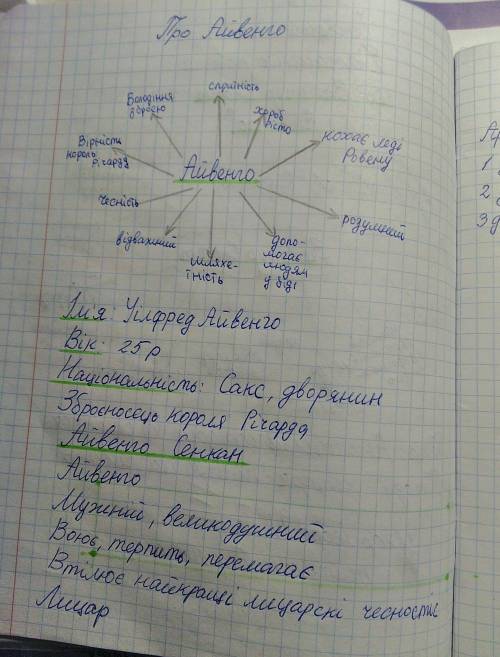 Про Айвенго
спритність
Володіння
зброєю
хороб
рість
кохає леді
Ровену
Вірність
король
Річарду
Айвенго
чесність
розумний
відважний
шляхе-
тність
допо-
могає
людям
у біді
Ім'я: Уілфред Айвенго
Вік: 25р
Національність: Сакс, дворянин
Зброєносець короля Річарда
Айвенго Сенкан
Айвенго
Мужній, великодушний
Воює, терпить, перемагає
Втілює найкращі лицарскі чесноти
Лицар
1
2
3